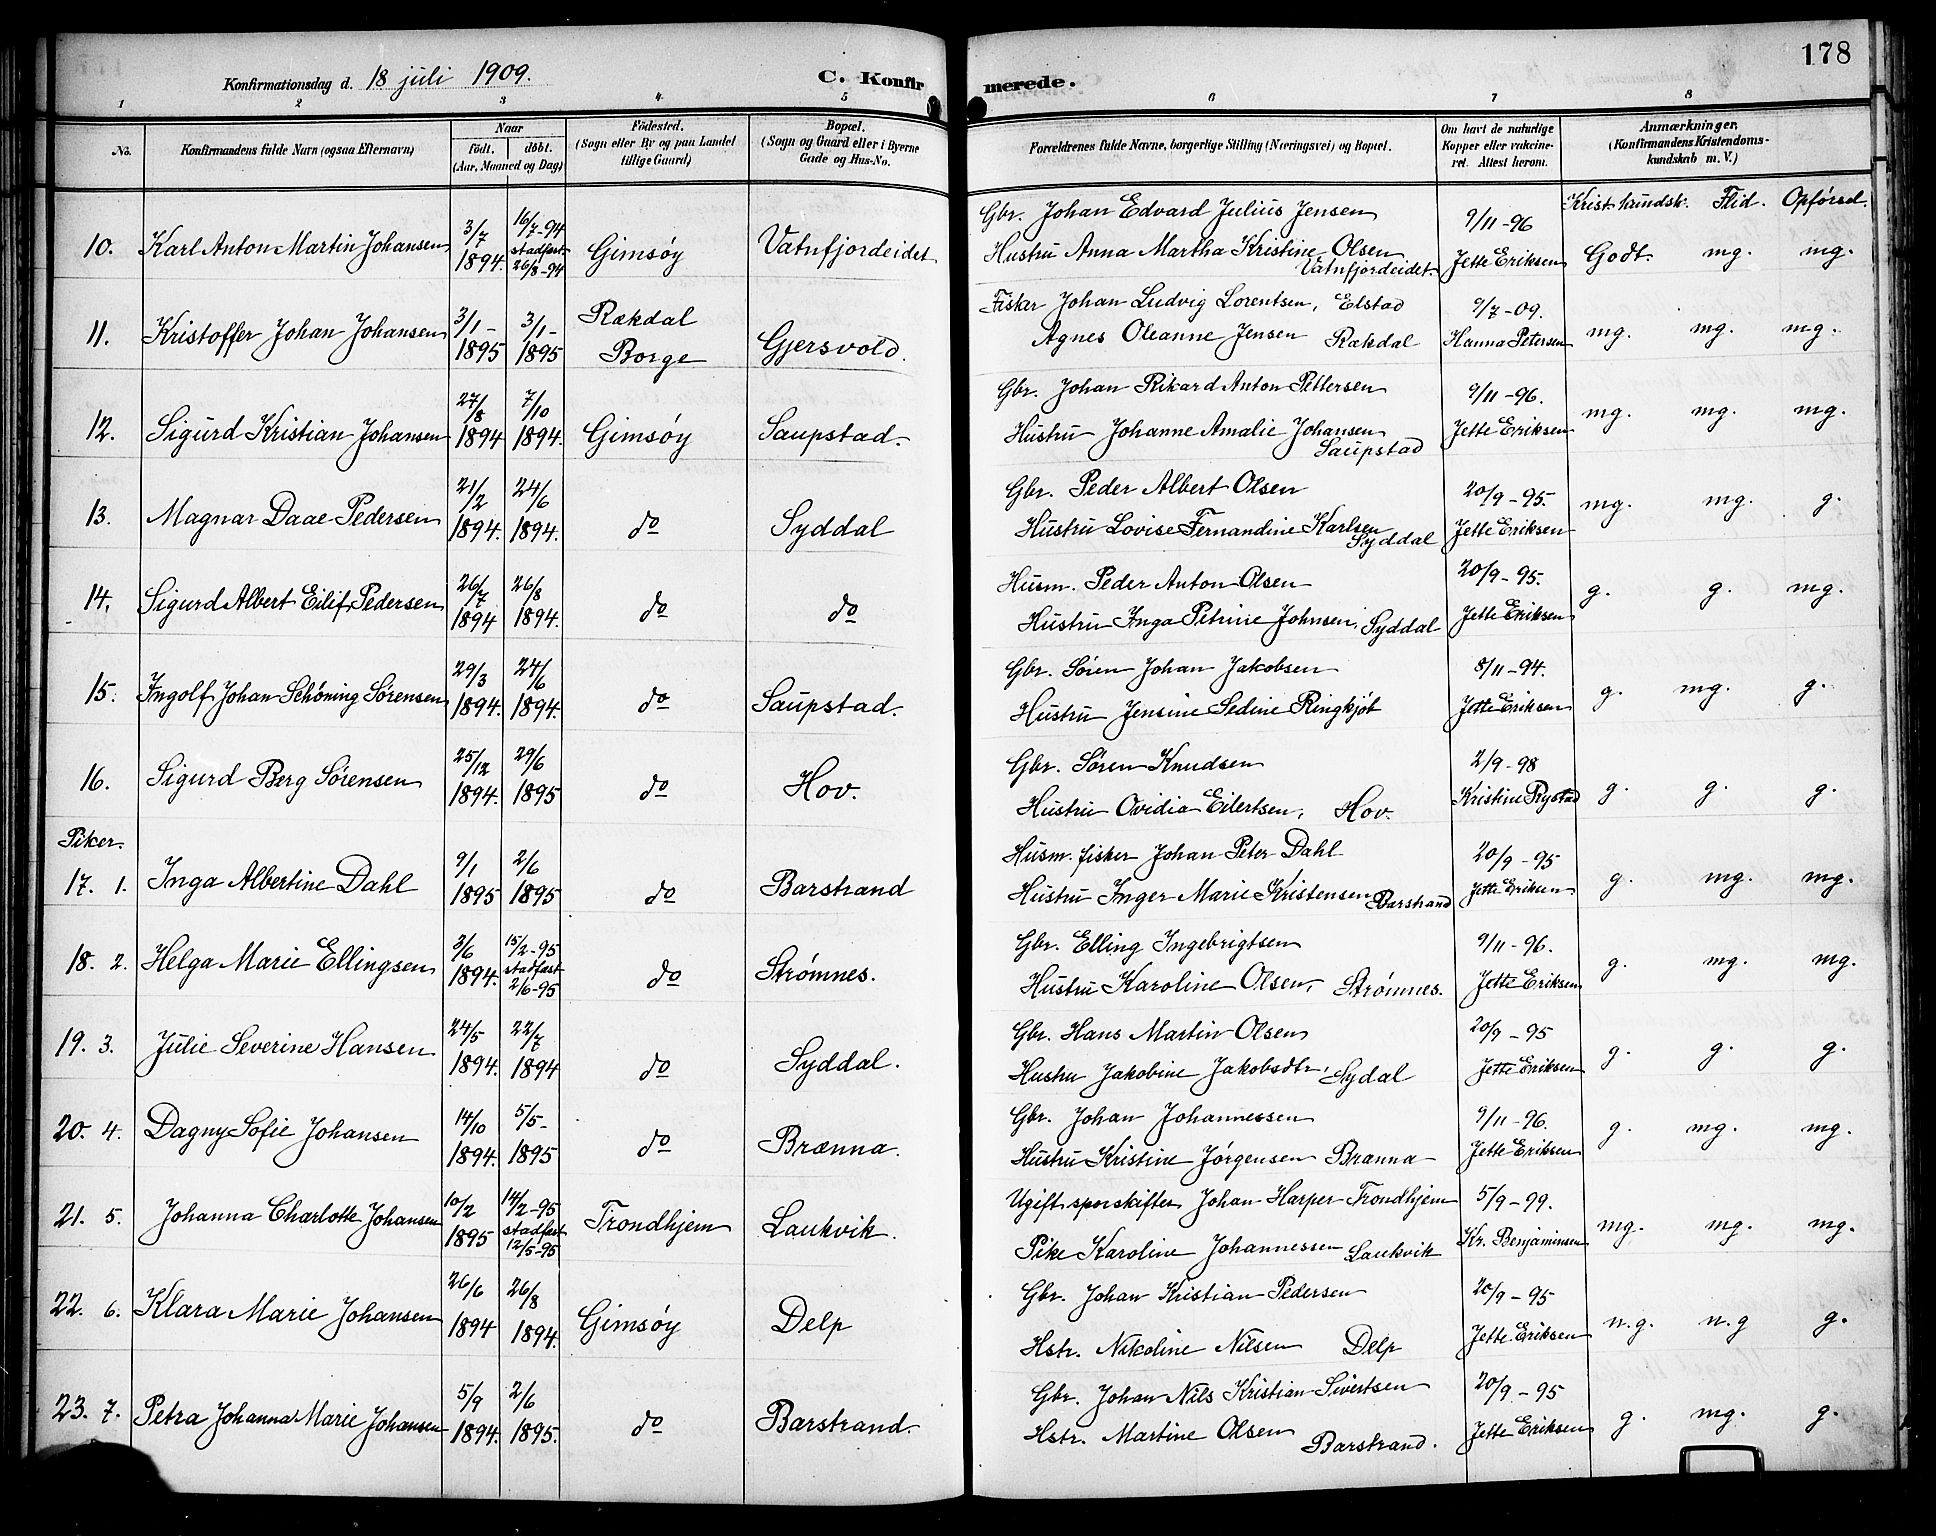 178
Konfirmationsdag d. 18 juli 1909.
C. Konfirmerede.
1 2 3 4 5 6 7 8
No.
Konfirmandens fulde Navn (ogsaa Efternavn)
Naar
født. døbt.
(Aar, Maaned og Dag)
Fødested.
(Sogn eller By og paa Landet
tillige Gaard)
Bopæl.
(Sogn og Gaard eller i Byerne
Gade og Hus-No.
Forældrenes fulde Navne, borgerlige Stilling (Næringsvei) og Bopæl.
Om havt de naturlige
Kopper eller vakcine-
ret. Attest herom.
Anmærkninger.
(Konfirmandens Kristendoms-
kundskab m. V.)
Krist. kundsk. Flid. Opførsel.
10. Karl Anton Martin Johansen 3/7 1894. 16/7-94 stadfæst. 26/8-94 Gimsøy Vatnfjordeidet
Gbr. Johan Edvard Julius Jensen 9/11-96
Hustru Anna Martha Kristine Olsen Vatnfjordeidet. Jette Eriksen Godt. mg. mg.
11. Kristoffer Johan Johansen 3/1- 1895 3/1- 1895 Rækdal Borge Gjersvold.
Fisker Johan Ludvig Lorentsen, Elstad 9/7-09.
Agnes Oleanne Jensen Rækdal Hanna Petersen mg. mg. mg.
12. Sigurd Kristian Johansen 27/8 1894 7/10 1894. Gimsøy Saupstad.
Gbr. Johan Rikard Anton Pettersen 9/11-96.
Hustru Johanne Amalie Johansen Saupstad Jette Eriksen mg. mg. mg.
13. Magnar Daae Pedersen 21/2 1894. 24/6 1894. do Syddal
Gbr. Peder Albert Olsen 20/9-95.
Hustru Lovise Fernandine Karlsen Syddal Jette Eriksen mg. mg. g.
14. Sigurd Albert Eilif Pedersen 26/7 1894 26/8 1894. do do
Husm. Peder Anton Olsen 20/9-95.
Hustru Inga Petrine Johnsen, Syddal Jette Eriksen g. g. mg.
15. Ingolf Johan Schöning Sørensen 29/3 1894. 24/6 1894. do Saupstad.
Gbr. Søren Johan Jakobsen 8/11-94.
Hustru Jensine Sedine Ringkjöb Jette Eriksen g. mg. g.
16. Sigurd Berg Sørensen 25/12 1894. 29/6 1895 do Hov.
Gbr. Søren Knudsen 2/9-98
Hustru Ovidia Eilertsen, Hov. Kristine Rystad g. g. g.
Piker.
17. 1. Inga Albertine Dahl 9/1 1895 2/6 1895 do Barstrand
Husm. fisker Johan Peter Dahl 20/9-95
Hustru Inger Marie Kristensen Barstrand Jette Eriksen g. mg. mg.
18. 2. Helga Marie Ellingsen 3/6 1894. 15/2-95 stadfæst 2/6-95 do Strømnes.
Gbr. Elling Ingebrigtsen 9/11-96.
Hustru Karoline Olsen, Strømnes. Jette Eriksen g. mg. mg.
19. 3. Julie Severine Hansen 24/5 1894. 22/7 1894 do Syddal.
Gbr. Hans Martin Olsen 20/9-95
Hustru Jakobine Jakobsdtr, Sydal Jette Eriksen g. g. g.
20. 4. Dagny Sofie Johansen 14/10 1894. 5/5- 1895 do Brænna.
Gbr. Johan Johannessen 9/11-96.
Hustru Kristine Jørgensen Brænna Jette Eriksen g. mg. mg.
21. 5. Johanna Charlotte Johansen 10/2 1895 14/2-95 stadfæst 12/5-95 Trondhjem Laukvik.
Ugift sporskifter Johan Harper Trondhjem 5/9-99.
Pike Karoline Johannessen Laukvik Kr. Benjaminsen mg. mg. mg.
22. 6. Klara Marie Johansen 26/6 1894 26/8 1894. Gimsøy Delp
Gbr. Johan Kristian Pedersen 20/9-95
Hstr. Nikoline Nilsen Delp Jette Eriksen n.g. n.g g.
23. 7. Petra Johanna Marie Johansen 5/9 1894. 2/6 1895. do Barstrand.
Gbr. Johan Nils Kristian Sivertsen 20/9-95
Hstr. Martine Olsen Barstrand. Jette Eriksen g. mg. g.